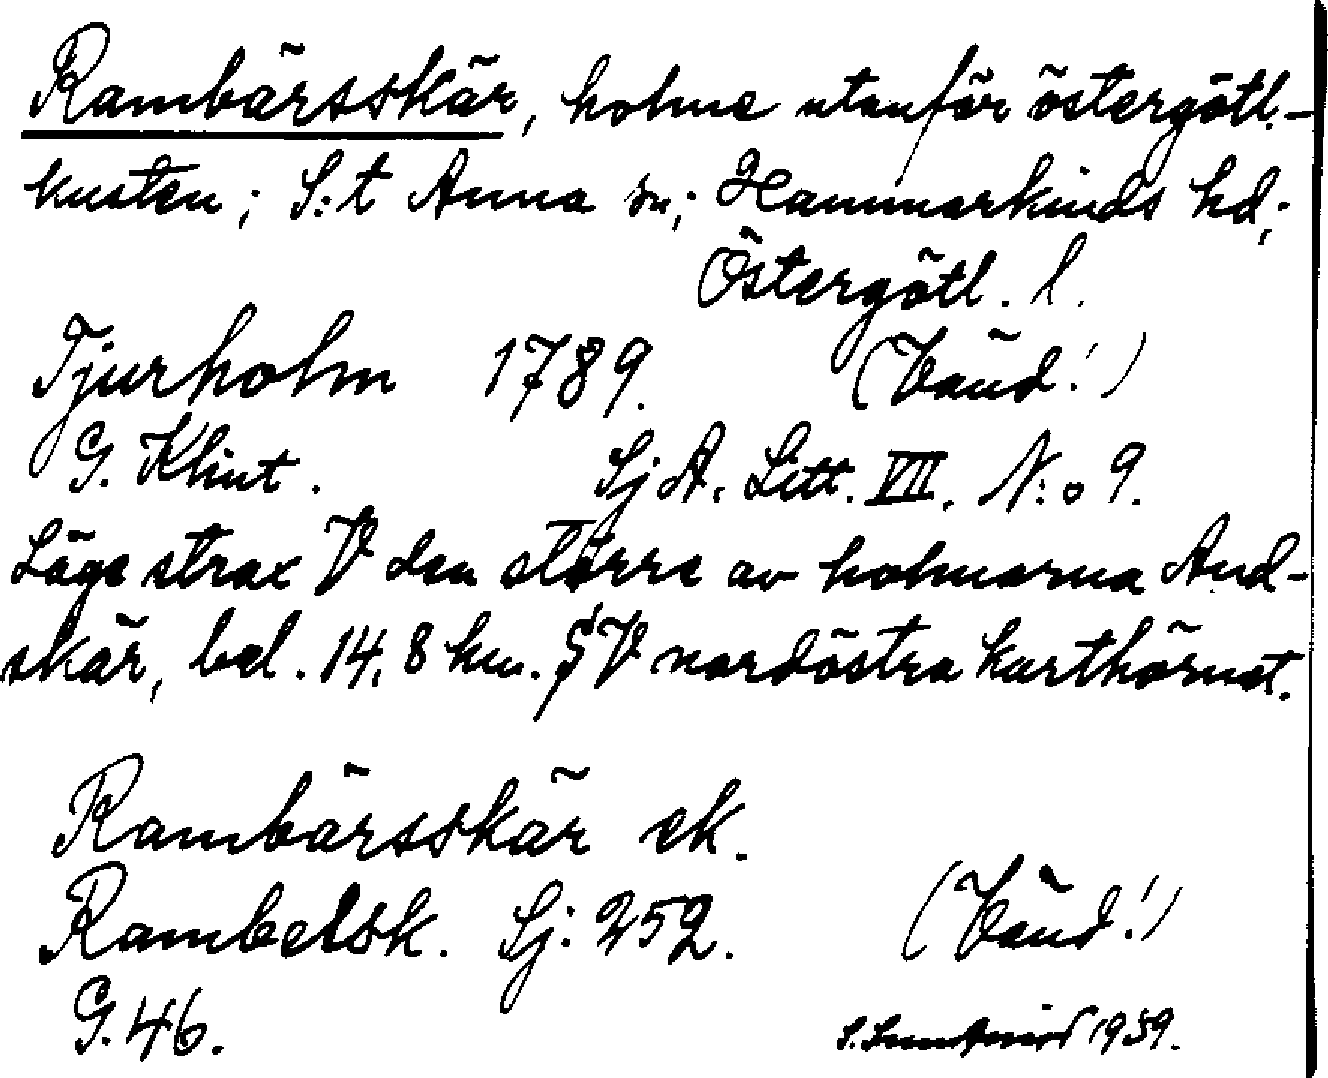 Rambärsskär, holme utanför östergötl.-
kusten; S:t Anna sn; Hammarkinds hd;
Östergötl. l.
Tjurholm 1789. (Vänd!)
G. Klint. SjA. Litt. VII. N:o 9.
Läge strax V den större av holmarna And-
skär, bel. 14,8 km. V nordöstra karthörnet.
Rambärsskär ek.
Rambelsk. Sj: 252. (Vänd!)
G. 46.
S. 1939.